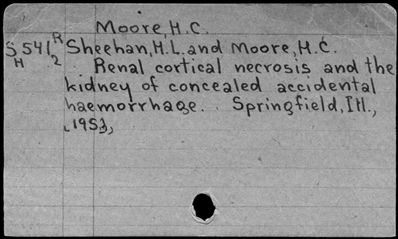 Moore, H.C.
S 541 R Sheehan, H.L. and Moore, H.C.
H 2 Renal cortical necrosis and the
kidney of concealed accidental
haemorrhage. . Springfield, Ill.,
1953,